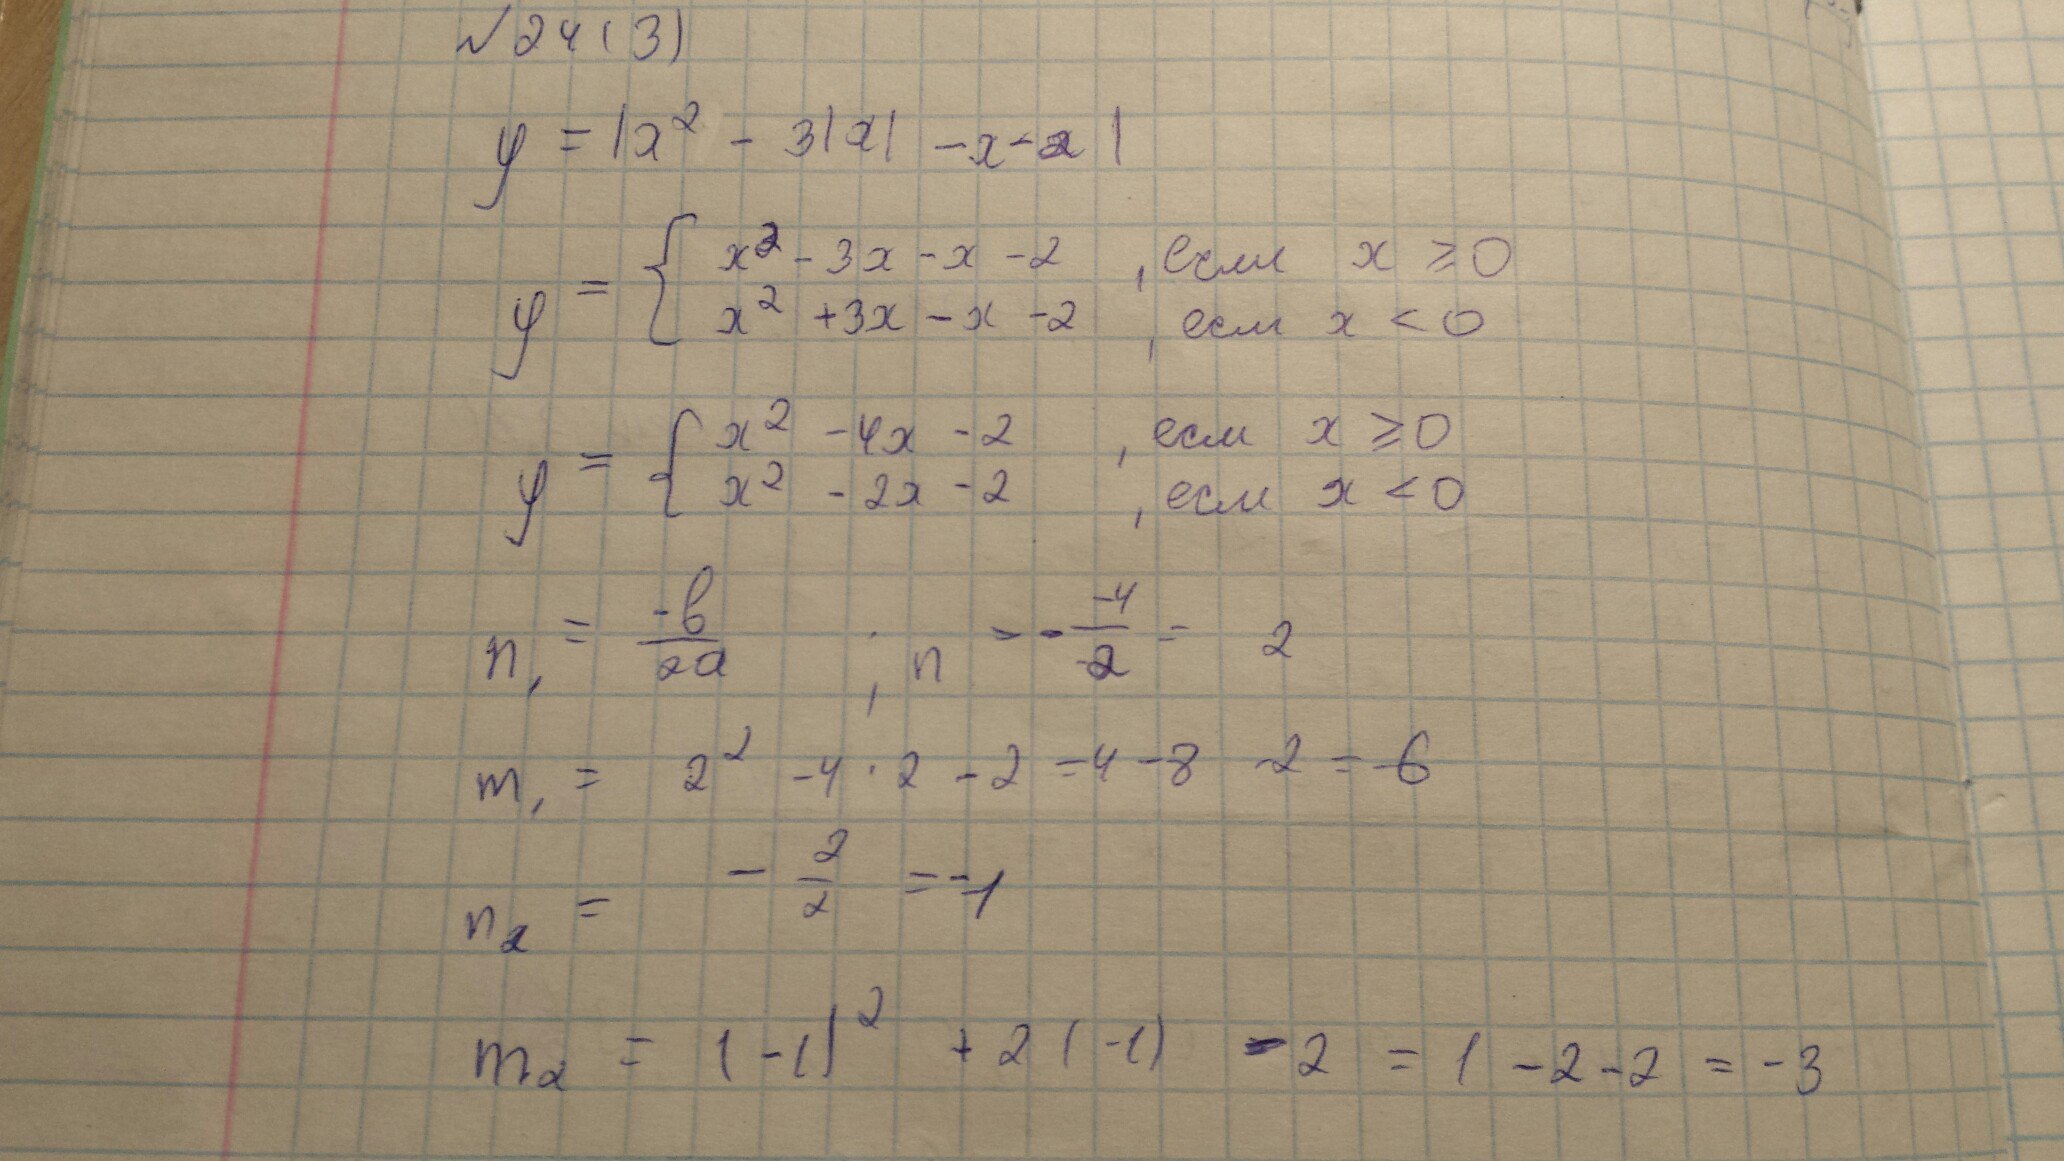 №24(3)
y = |x² - 3|x| - x - 2|
y = { x² - 3x - x - 2 , если x ≥ 0
x² + 3x - x - 2 , если x < 0
y = { x² - 4x - 2 , если x ≥ 0
x² - 2x - 2 , если x < 0
n₁ = -b/2a ; n = - -4/2 = 2
m₁ = 2² - 4 · 2 - 2 = 4 - 8 - 2 = -6
n₂ = - 2/2 = -1
m₂ = (-1)² + 2(-1) - 2 = 1 - 2 - 2 = -3